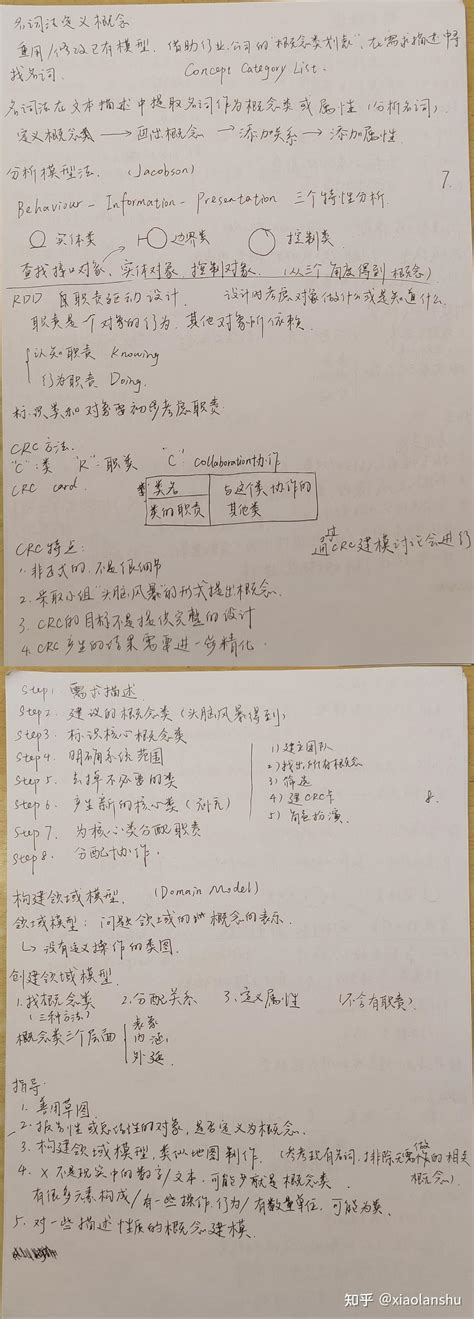 名词法定义概念
重用/修改已有模型. 借助行业,公司的"概念类列表", 在需求描述中寻
找名词. Concept Category List.
名词法在文本描述中提取名词作为概念类或属性 (分析名词).
定义概念类 → 画出概念 → 添加关系 → 添加属性.
分析模型法. (Jacobson)
7.
Behaviour - Information - Presentation 三个特性分析.
实体类 边界类 控制类
查找接口对象、实体对象、控制对象. (从三个角度得到概念)
RDD 职责驱动设计. 设计时考虑对象做什么或是知道什么.
职责是一个对象的行为, 其他对象所依赖.
认知职责 Knowing
行为职责 Doing.
标识类和对象要初步考虑职责.
CRC方法.
"C":类 "R":职类 "C": collaboration协作
CRC card.
类名 与这个类协作的
类的职责 其他类
CRC特点: 通过CRC建模讨论会进行
1. 非正式的,不是很细节
2. 采取小组"头脑风暴"的形式提出概念.
3. CRC的目标不是提供完整的设计
4. CRC产生的结果需要进一步精化.
Step1. 需求描述.
Step2. 建议的概念类(头脑风暴得到)
Step3. 标识核心概念类
Step4. 明确系统范围
Step5. 去掉不必要的类
Step6. 产生新的核心类(补充)
Step7. 为核心类分配职责
Step8. 分配协作.
1) 建立团队
2) 找出所有概念
3) 筛选
4) 建CRC卡
5) 角色扮演.
8.
构建领域模型. (Domain Model)
领域模型: 问题领域的概念的表示.
↳ 没有定义操作的类图.
创建领域模型.
1.找概念类 2.分配关系 3.定义属性 (不含有职责)
(三种方法)
概念类三个层面
表象
内涵
外延
指导.
1. 善用草图.
2. 报告性或总结性的对象,是否定义为概念.
3. 构建领域模型, 类似地图制作. (参考现有名词,排除无需做的相关
概念).
4. X不是现实中的数字/文本,可能多就是概念类.
有很多元素构成/有一些操作,行为/有数量单位,可能为类.
5. 对一些描述性质的概念建模.
知乎 @xiaolanshu